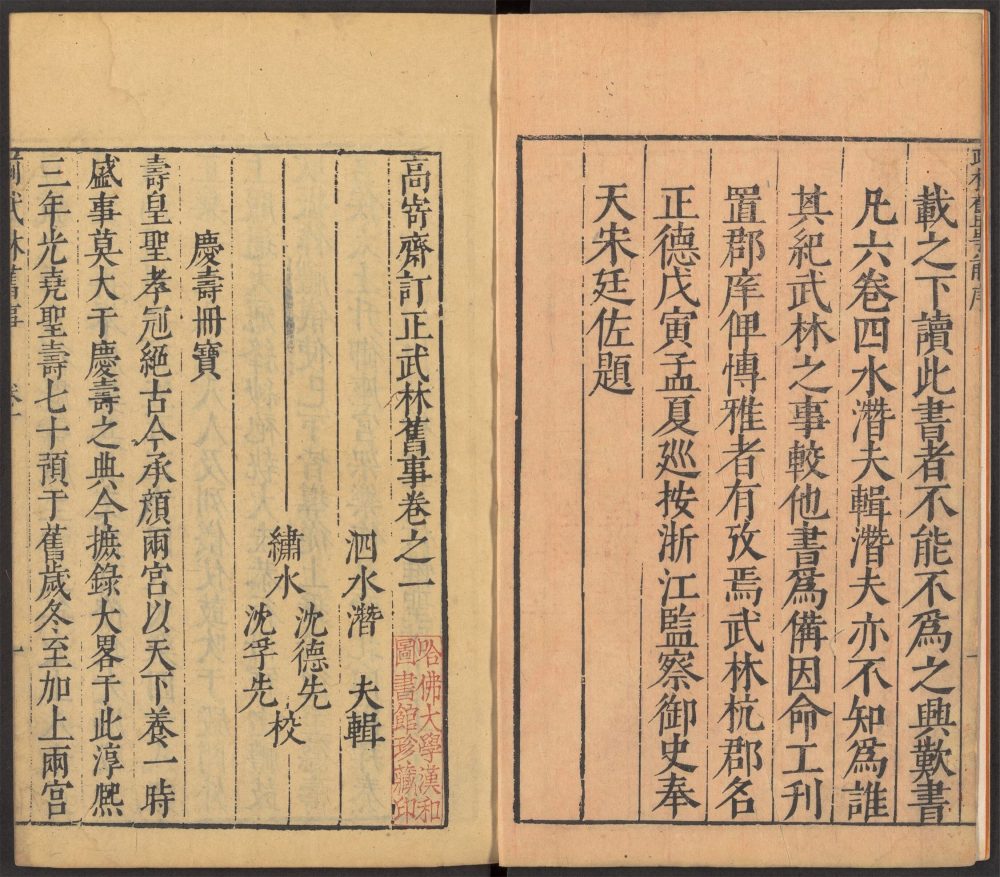 載之下讀此書者不能不爲之興歎書
凡六卷四水潛夫輯潛夫亦不知爲誰
其紀武林之事較他書爲備因命工刊
置郡庠俾愽雅者有攷焉武林杭郡名
正德戊寅孟夏廵按浙江監察御史奉
天宋廷佐題
高寄齋訂正武林舊事卷之一
泗水潛 夫輯
繡水 沈德先 沈孚先 校
慶壽冊寶
壽皇聖孝冠絕古今承顏兩宮以天下養一時
盛事莫大于慶壽之典今摭錄大畧于此淳熙
三年光堯聖壽七十預于舊歲冬至加上兩宮
武林舊事 卷一 一
哈佛大學漢和
圖書館珍藏印